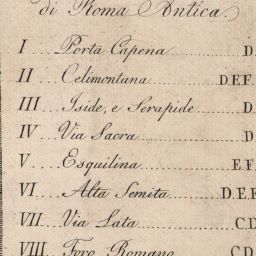 di Roma Antica.
I Porta Capena D.
II Celimontana D.E.F.
III Iside, e Serapide D.
IV Via Sacra D
V. Esquilina E.F
VI. Alta Semita D.E.F.
VII. Via Lata C.D
VIII. Foro Romano C.D.